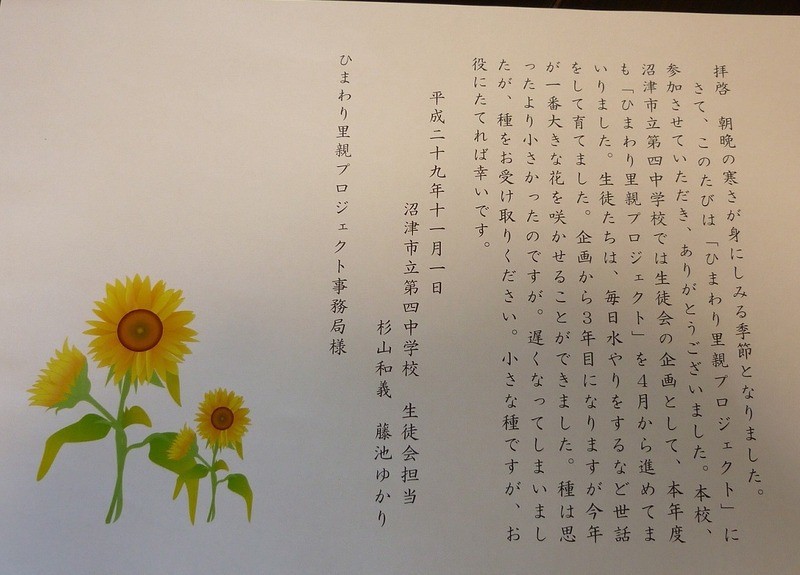 拝啓　朝晩の寒さが身にしみる季節となりました。
さて、このたびは「ひまわり里親プロジェクト」に
参加させていただき、ありがとうございました。本校、
沼津市立第四中学校では生徒会の企画として、本年度
も「ひまわり里親プロジェクト」を４月から進めてま
いりました。生徒たちは、毎日水やりをするなど世話
をして育てました。企画から３年目になりますが今年
が一番大きな花を咲かせることができました。種は思
ったより小さかったのですが。遅くなってしまいまし
たが、種をお受け取りください。小さな種ですが、お
役にたてれば幸いです。
平成二十九年十一月一日
沼津市立第四中学校　生徒会担当
杉山和義　藤池ゆかり
ひまわり里親プロジェクト事務局様